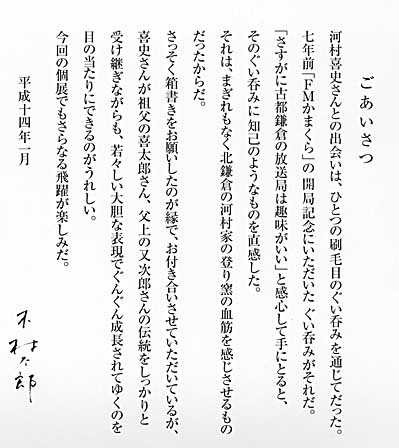 ごあいさつ
河村喜史さんとの出会いは、ひとつの刷毛目のぐい呑みを通じてだった。
七年前「FMかまくら」の開局記念にいただいた ぐい呑みがそれだ。
「さすがに古都鎌倉の放送局は趣味がいい」と感心して手にとると、
そのぐい呑みに知己のようなものを直感した。
それは、まぎれもなく北鎌倉の河村家の登り窯の血筋を感じさせるもの
だったからだ。
さっそく箱書きをお願いしたのが縁で、お付き合いさせていただいているが、
喜史さんが祖父の喜太郎さん、父上の又次郎さんの伝統をしっかりと
受け継ぎながらも、若々しい大胆な表現でぐんぐん成長されてゆくのを
目の当たりにできるのがうれしい。
今回の個展でもさらなる飛躍が楽しみだ。
平成十四年一月
木村太郎